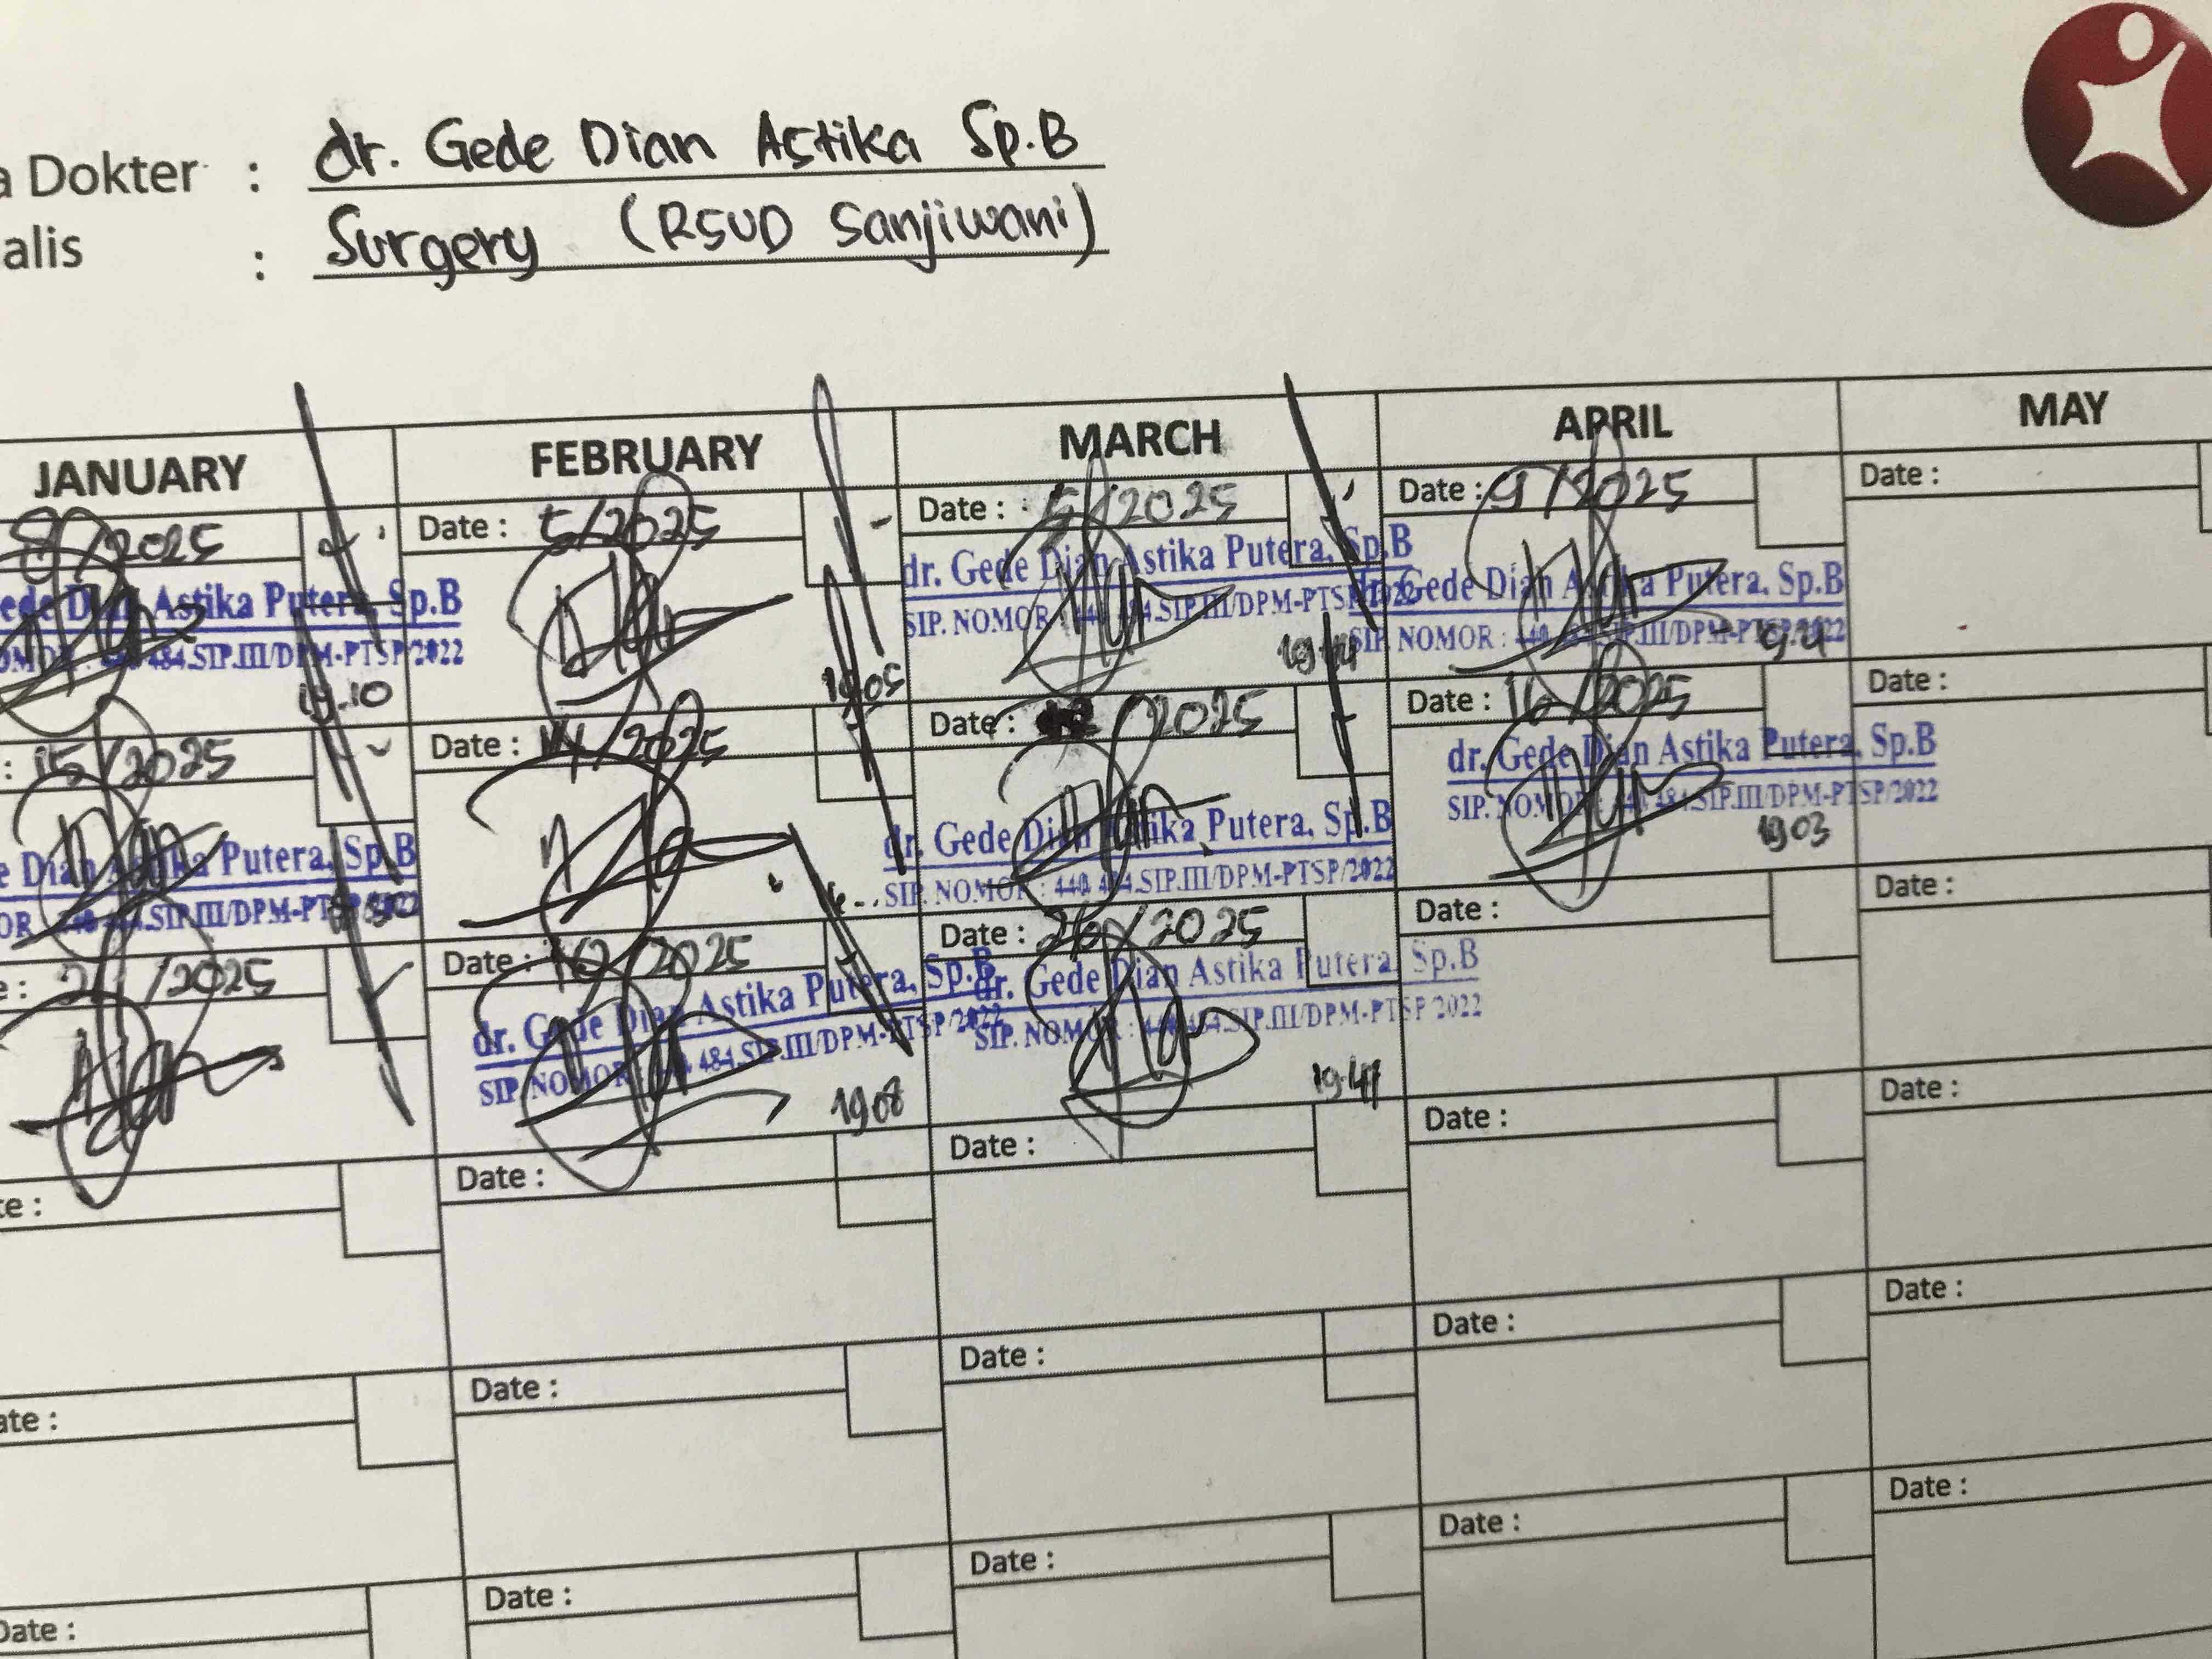 a Dokter : dr. Gede Dian Astika Sp.B
alis : Surgery (RSUD Sanjiwani)
JANUARY FEBRUARY MARCH APRIL MAY
8/2025 Date : 5/2025 Date : 5/2025 Date : 9/2025 Date :
ede Dian Astika Putera, Sp.B dr. Gede Dian Astika Putera, Sp.B Gede Dian Astika Putera, Sp.B
484.SIP.III/DPM-PTSP/2022 SIP. NOMOR : 440 484.SIP.III/DPM-PTSP/2022 SIP. NOMOR : 440 SIP.III/DPM-PTSP/2022
19.10 1905
: 15/2025 Date : 14/2025 Date : /2025 Date : 16/2025 Date :
e Dian Astika Putera, Sp.B dr. Gede Dian Astika Putera, Sp.B dr. Gede Dian Astika Putera, Sp.B
OR 484.SIP.III/DPM-PTSP/2022 SIP. NOMOR : 440 484.SIP.III/DPM-PTSP/2022 SIP. NOMOR : 440 484.SIP.III/DPM-PTSP/2022
1903
e : /2025 Date : /2025 Date : 26/2025 Date : Date :
dr. Gede Dian Astika Putera, Sp.B dr. Gede Dian Astika Putera, Sp.B
SIP. NOMOR : 484.SIP.III/DPM-PTSP/2022 SIP. NOMOR : 440 484.SIP.III/DPM-PTSP/2022
1908
te : Date : Date : Date : Date :
ate : Date : Date : Date : Date :
Date : Date : Date : Date : Date :